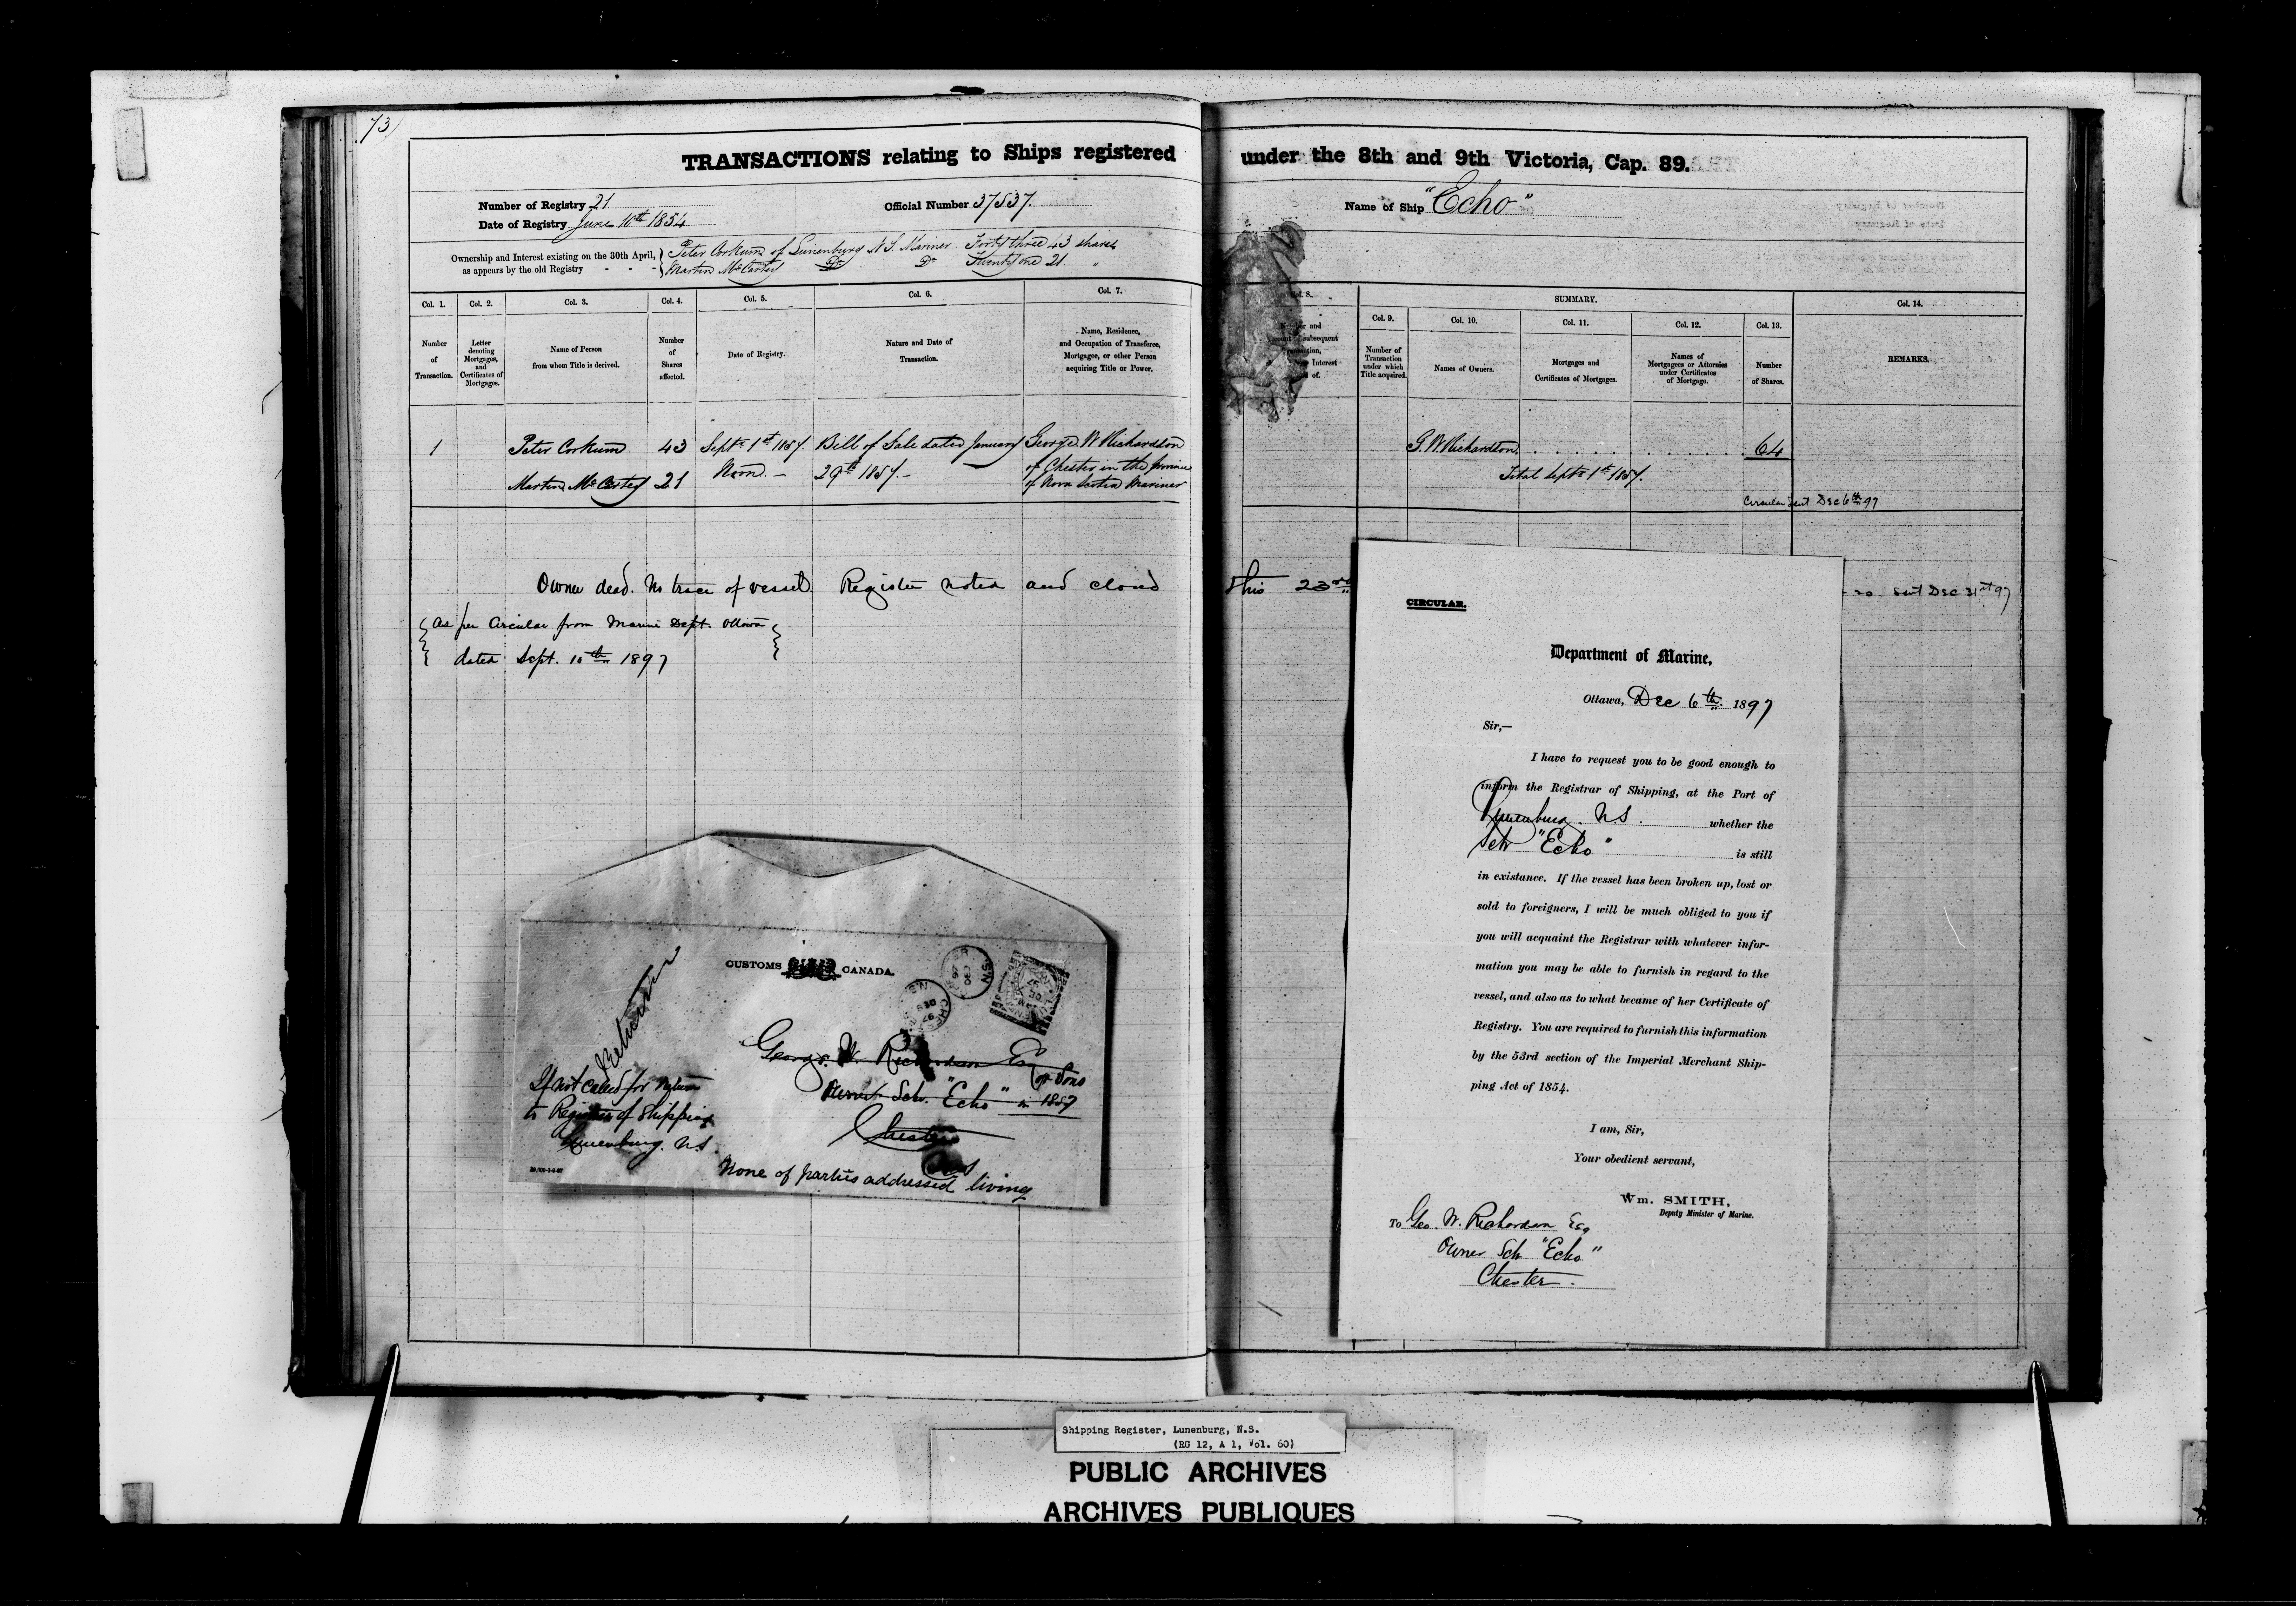 73)
TRANSACTIONS relating to Ships registered under the 8th and 9th Victoria, Cap. 89.
Number of Registry 21
Date of Registry June 10th 1854
Official Number 37537
Name of Ship "Echo"
Ownership and Interest existing on the 30th April,
as appears by the old Registry - - -
Peter Corkum of Lunenburg N.S. Mariner Forty three 43 shares
Martin McCarty Do Do Twenty one 21 "
Col. 1. Col. 2. Col. 3. Col. 4. Col. 5. Col. 6. Col. 7.
Number of Transaction.
Letter denoting Mortgages, and Certificates of Mortgages.
Name of Person from whom Title is derived.
Number of Shares affected.
Date of Registry.
Nature and Date of Transaction.
Name, Residence, and Occupation of Transferee, Mortgagee, or other Person acquiring Title or Power.
1 Peter Corkum 43 Septr 1st 1857. Bill of Sale dated January George W Richardson
Martin McCarty 21 Noon.- 29th 1857.- of Chester in the
of Nova Scotia Mariner
Owner dead. No trace of vessel. Register noted and closed
this 23rd
{ As per Circular from Marine Dept. Ottawa }
dated Sept. 10th 1897
8.
and
subsequent
Interest
of.
SUMMARY.
Col. 9. Col. 10. Col. 11. Col. 12. Col. 13. Col. 14.
Number of Transaction under which Title acquired.
Names of Owners.
Mortgages and Certificates of Mortgages.
Names of Mortgagees or Attornies under Certificates of Mortgage.
Number of Shares.
REMARKS.
G. W. Richardson . . . . . . . . . . . . 64
Total Septr 1st 1857.
Circular sent Dec 6th 97
sent Dec 21st 97
CUSTOMS CANADA.
George W. Richardson Esq
or Sons
Owner Sch. "Echo" in 1857
Chester
NS
If not called for return
to Registrar of Shipping
Lunenburg. N.S.
None of parties addressed living
CIRCULAR.
Department of Marine,
Ottawa, Dec 6th 1897
Sir,—
I have to request you to be good enough to
inform the Registrar of Shipping, at the Port of
Lunenburg. N.S. whether the
Sch "Echo" is still
in existance. If the vessel has been broken up, lost or
sold to foreigners, I will be much obliged to you if
you will acquaint the Registrar with whatever infor-
mation you may be able to furnish in regard to the
vessel, and also as to what became of her Certificate of
Registry. You are required to furnish this information
by the 53rd section of the Imperial Merchant Ship-
ping Act of 1854.
I am, Sir,
Your obedient servant,
Wm. SMITH,
Deputy Minister of Marine.
To Geo. W. Richardson Esq
Owner Sch "Echo"
Chester.
Shipping Register, Lunenburg, N.S.
(RG 12, A 1, Vol. 60)
PUBLIC ARCHIVES
ARCHIVES PUBLIQUES